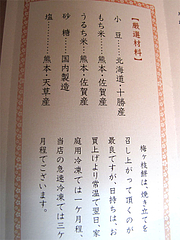 【厳選材料】
小豆……北海道・十勝産
もち米……熊本・佐賀産
うるち米……熊本・佐賀産
砂糖……国内製造
塩……熊本・天草産
梅ヶ枝餅は、焼き立てを
召し上がって頂くのが
最良ですが、日持ちはお
買上げより常温で翌日、家
庭用冷凍では一ヶ月程、
当店の急速冷凍では三ヶ
月程でございます。